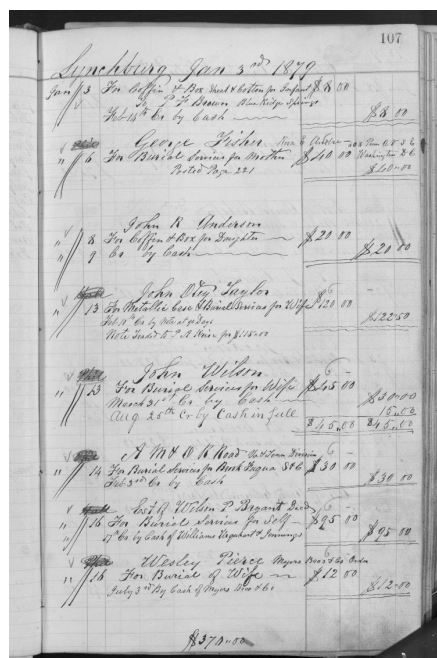 107
Lynchburg Jan 3rd 1879
Jan 3 For Coffin & Box Sheet & Cotton for Infant $8 00
P F Brown Blue Ridge Springs
Feb 14th Cr by Cash $8 00
George Fisher
" 6 For Burial Services for Mother $40 00 Washington D C
Posted Page 221 $40.00
John R Anderson
" 8 For Coffin & Box for Daughter $20 00
" 9 Cr by Cash $20 00
John Otey Taylor
" 13 For Metallic Case & Burial Services for Wife $120 00
Feb 11th Cr by Note at 90 Days $122.50
John Wilson
" 13 For Burial Services for Wife $45 00
March 31st Cr by Cash $30.00
Aug 25th Cr by Cash in full 15.00
$45.00 $45.00
A M & O R Road Va & Tenn Division
" 14 For Burial Services for $30 00
Feb 3rd Cr by Cash $30 00
Est of Wilson P Bryant Decd
" 16 For Burial Services for Self $95 00
17th Cr by Cash of Williams Urquhart & Jennings $95 00
Wesley Pierce Myers Bros & Co Order
" 16 For Burial of Wife $12 00
July 3rd By Cash of Myers Bros & Co $12.00
$370.00